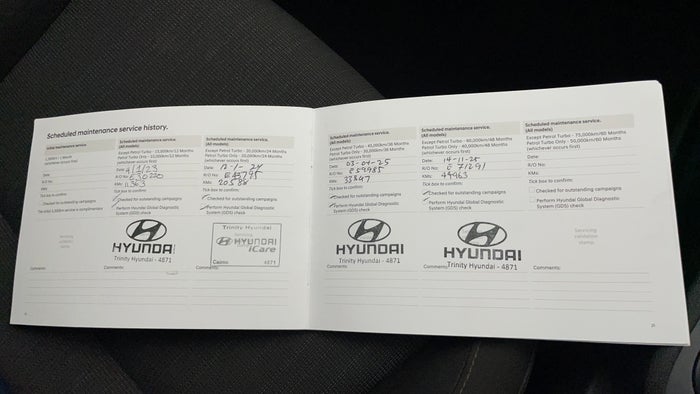 Scheduled maintenance service history.
Initial maintenance service
1,500km / 1 Month
(whichever occurs first)
Date:
R/O No:
KMs:
Tick box to confirm:
Checked for outstanding campaigns
The initial 1,500km service is complimentary
Servicing
validation
stamp
Comments:
Scheduled maintenance service.
(All models)
Except Petrol Turbo - 15,000km/12 Months
Petrol Turbo Only - 10,000km/12 Months
(whichever occurs first)
Date: 4/1/23
R/O No: E30220
KMs: 11363
Tick box to confirm:
Checked for outstanding campaigns
Perform Hyundai Global Diagnostic
System (GDS) check
HYUNDAI
Trinity Hyundai - 4871
Comments:
Scheduled maintenance service.
(All models)
Except Petrol Turbo - 30,000km/24 Months
Petrol Turbo Only - 20,000km/24 Months
(whichever occurs first)
Date: 12-1-24
R/O No: E43795
KMs: 20588
Tick box to confirm:
Checked for outstanding campaigns
Perform Hyundai Global Diagnostic
System (GDS) check
Trinity Hyundai
Servicing
HYUNDAI
iCare
Cairns 4871
Comments:
Scheduled maintenance service.
(All models)
Except Petrol Turbo - 45,000km/36 Months
Petrol Turbo Only - 30,000km/36 Months
(whichever occurs first)
Date: 03-04-25
R/O No: E59985
KMs: 33847
Tick box to confirm:
Checked for outstanding campaigns
Perform Hyundai Global Diagnostic
System (GDS) check
HYUNDAI
Trinity Hyundai - 4871
Comments:
Scheduled maintenance service.
(All models)
Except Petrol Turbo - 60,000km/48 Months
Petrol Turbo Only - 40,000km/48 Months
(whichever occurs first)
Date: 14-11-25
R/O No: E71291
KMs: 44963
Tick box to confirm:
Checked for outstanding campaigns
Perform Hyundai Global Diagnostic
System (GDS) check
HYUNDAI
Trinity Hyundai - 4871
Comments:
Scheduled maintenance service.
(All models)
Except Petrol Turbo - 75,000km/60 Months
Petrol Turbo Only - 50,000km/60 Months
(whichever occurs first)
Date:
R/O No:
KMs:
Tick box to confirm:
Checked for outstanding campaigns
Perform Hyundai Global Diagnostic
System (GDS) check
Servicing
validation
stamp
Comments: